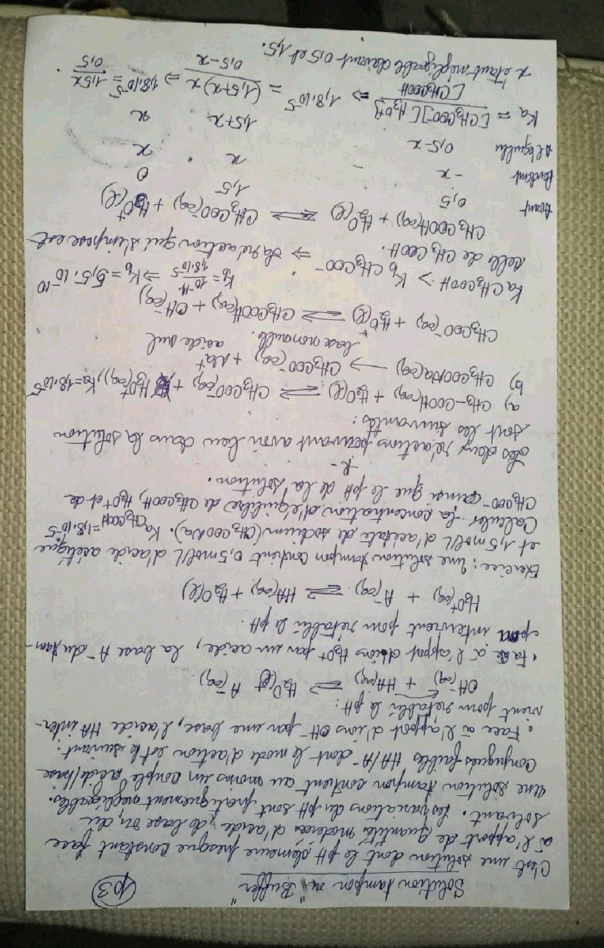 p3
Solution tampon ou "Buffer"
C'est une solution dont le pH demeure presque constant face
à l'apport de quantités modérées d'acide, de base ou, du
solvant. Les variations du pH sont pratiquement négligeables.
Une solution tampon contient au moins un couple acid/base
conjugués faibles HA/A⁻ dont le mode d'action est le suivant:
• Face à l'apport d'ions OH⁻ par une base, l'acide HA inter-
vient pour rétablir le pH:
OH⁻(aq) + HA(aq) ⇌ H₂O(l) + A⁻(aq).
• Face à l'apport d'ions H₃O⁺ par un acide, la base A⁻ du tam-
pon intervient pour rétablir le pH.
H₃O⁺(aq) + A⁻(aq) ⇌ HA(aq) + H₂O(l)
Exercice: Une solution tampon contient 0,5 mol/L d'acide acétique
et 1,5 mol/L d'acétate de sodium (CH₃COONa). Ka CH₃COOH = 1,8.10⁻⁵.
Calculer la concentration d'équilibre de CH₃COOH, H₃O⁺ et de
CH₃COO⁻ ainsi que le pH de la solution.
R-
Les deux réactions pouvant avoir lieu dans la solution
sont les suivantes:
a) CH₃-COOH(aq) + H₂O(l) ⇌ CH₃COO⁻(aq) + H₃O⁺(aq), Ka=1,8.10⁻⁵
b) CH₃COONa(aq) → CH₃COO⁻(aq) + Na⁺
base acide nul
CH₃COO⁻(aq) + H₂O(l) ⇌ CH₃COOH(aq) + OH⁻(aq)
Kb = 10⁻¹⁴/1,8.10⁻⁵ ⇒ Kb = 5,5.10⁻¹⁰
Ka CH₃COOH > Kb CH₃COO⁻ ⇒ La réaction qui s'impose est
celle de CH₃COOH.
CH₃COOH(aq) + H₂O(l) ⇌ CH₃COO⁻(aq) + H₃O⁺(l)
Avant 0,5 1,5 0
Pendant -x - x x
A l'équilibre 0,5-x - 1,5+x x
Ka = [CH₃COO⁻][H₃O⁺]/[CH₃COOH] ⇒ 1,8.10⁻⁵ = (1,5+x)x/0,5-x ⇒ 1,8.10⁻⁵ = 1,5x/0,5
x étant négligeable devant 0,5 et 1,5.